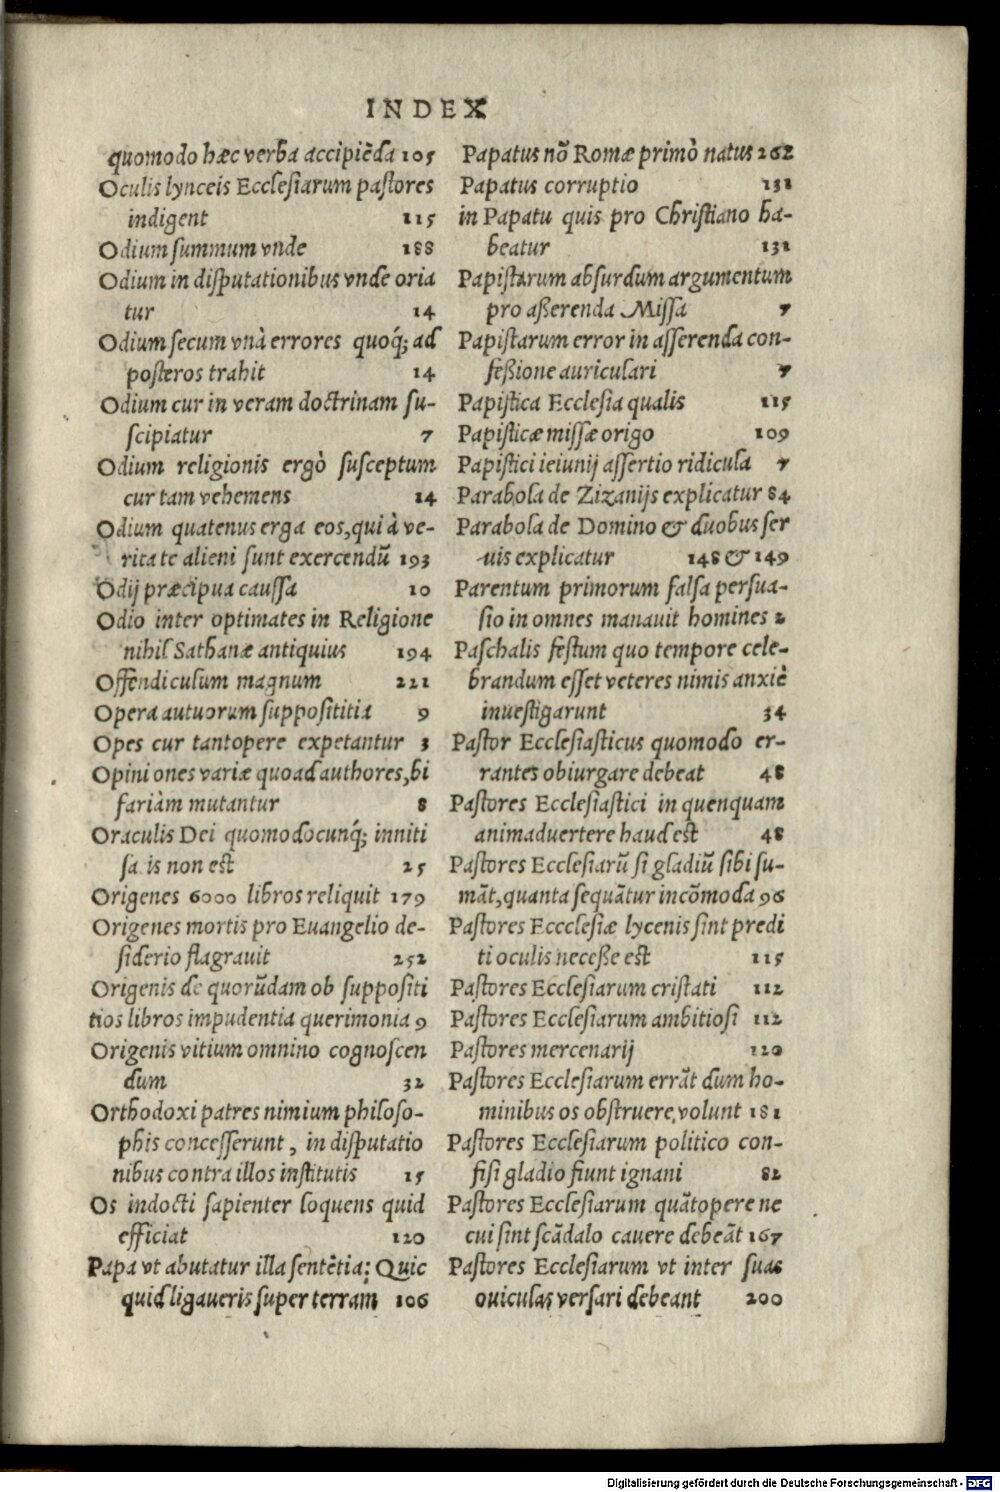 INDEX
quomodo hæc verba accipiẽda 105
Oculis lynceis Ecclesiarum pastores
indigent 115
Odium summum vnde 188
Odium in disputationibus vnde oria
tur 14
Odium secum vnà errores quoq́; ad
posteros trahit 14
Odium cur in veram doctrinam su-
scipiatur 7
Odium religionis ergò susceptum
cur tam vehemens 14
Odium quatenus erga eos, qui à ve-
ritate alieni sunt exercendũ 193
Odij præcipua caussa 10
Odio inter optimates in Religione
nihil Sathanæ antiquius 194
Offendiculum magnum 221
Opera autuorum supposititia 9
Opes cur tantopere expetantur 3
Opiniones variæ quoad authores, bi
fariàm mutantur 8
Oraculis Dei quomodocunq́; inniti
sa is non est 25
Origenes 6000 libros reliquit 179
Origenes mortis pro Euangelio de-
siderio flagrauit 252
Origenis de quorũdam ob suppositi
tios libros impudentia querimonia 9
Origenis vitium omnino cognoscen
dum 32
Orthodoxi patres nimium philoso-
phis concesserunt, in disputatio
nibus contra illos institutis 15
Os indocti sapienter loquens quid
efficiat 120
Papa vt abutatur illa sentẽtia: Quic
quid ligaueris super terram 106
Papatus nõ Romæ primò natus 262
Papatus corruptio 131
in Papatu quis pro Christiano ha-
beatur 131
Papistarum absurdum argumentum
pro aßerenda Missa 7
Papistarum error in asserenda con-
feßione auriculari 7
Papistica Ecclesia qualis 115
Papisticæ missæ origo 109
Papistici ieiunij assertio ridicula 7
Parabola de Zizanijs explicatur 84
Parabola de Domino & duobus ser
uis explicatur 148 & 149
Parentum primorum falsa persua-
sio in omnes manauit homines 2
Paschalis festum quo tempore cele-
brandum esset veteres nimis anxiè
inuestigarunt 34
Pastor Ecclesiasticus quomodo er-
rantes obiurgare debeat 48
Pastores Ecclesiastici in quenquam
animaduertere haud est 48
Pastores Ecclesiarũ si gladiũ sibi su-
mãt, quanta sequãtur incõmoda 96
Pastores Eccclesiæ lycenis sint predi
ti oculis neceße est 115
Pastores Ecclesiarum cristati 112
Pastores Ecclesiarum ambitiosi 112
Pastores mercenarij 120
Pastores Ecclesiarum errãt dum ho-
minibus os obstruere volunt 181
Pastores Ecclesiarum politico con-
fisi gladio fiunt ignaui 82
Pastores Ecclesiarum quãtopere ne
cui sint scãdalo cauere debeãt 167
Pastores Ecclesiarum vt inter suas
ouiculas versari debeant 200
Digitalisierung gefördert durch die Deutsche Forschungsgemeinschaft - DFG